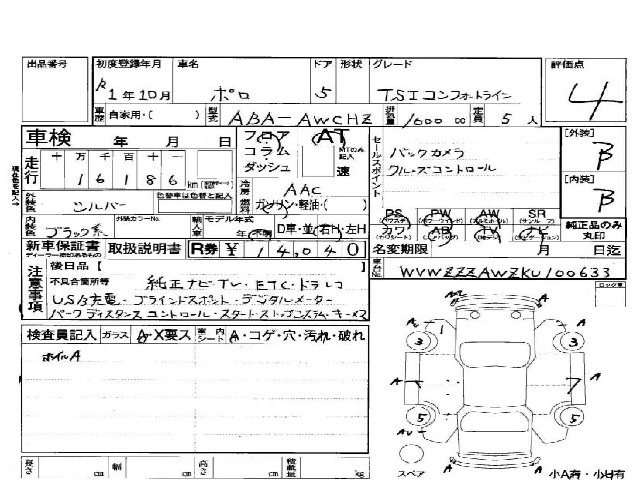 出品番号 初度登録年月 車名 ドア 形状 グレード 評価点
R1年10月 ポロ 5 TSIコンフォートライン 4
車歴 自家用・( ) 型式 ABA-AWCHZ 排気量 1000cc 定員 5人
車検 年 月 日 フロア コラム・ ダッシュ AT MTのみ記入 速
走行 十 万 千 百 十 一
1 6 1 8 6 km
セールスポイント バックカメラ
クルーズコントロール
[外装] B
[内装] B
現在色を記入→
外装色 シルバー 色替車は色替と記入
冷房 AAC
燃料 ガソリン・軽油・( )
内装色 ブラック系 外装カラーNo. 輸入車 モデル年式 年(不明) D車・並 右H・左H
PS PW AW SR
カワ AB TV ナビ
純正品のみ丸印
新車保証書 取扱説明書 R券 ¥ 14,040
名変期限 月 日迄
車台No. WVWZZZAWZKU100633
注意事項 後日品【
不具合箇所等 純正ナビTV・ETC・ドラレコ
USB充電・ブラインドスポット・デジタルメーター
パークディスタンスコントロール・スタートストップシステム・キーズ
検査員記入 ガラス A・X要ス 室内 シート A・コゲ・穴・汚れ・破れ
ホイルA
長さ cm 幅 cm 高さ cm 積載量 kg
A A
3 1 3 A
A 7 A
5 5 A
AU
スペア A 小A有・小U有